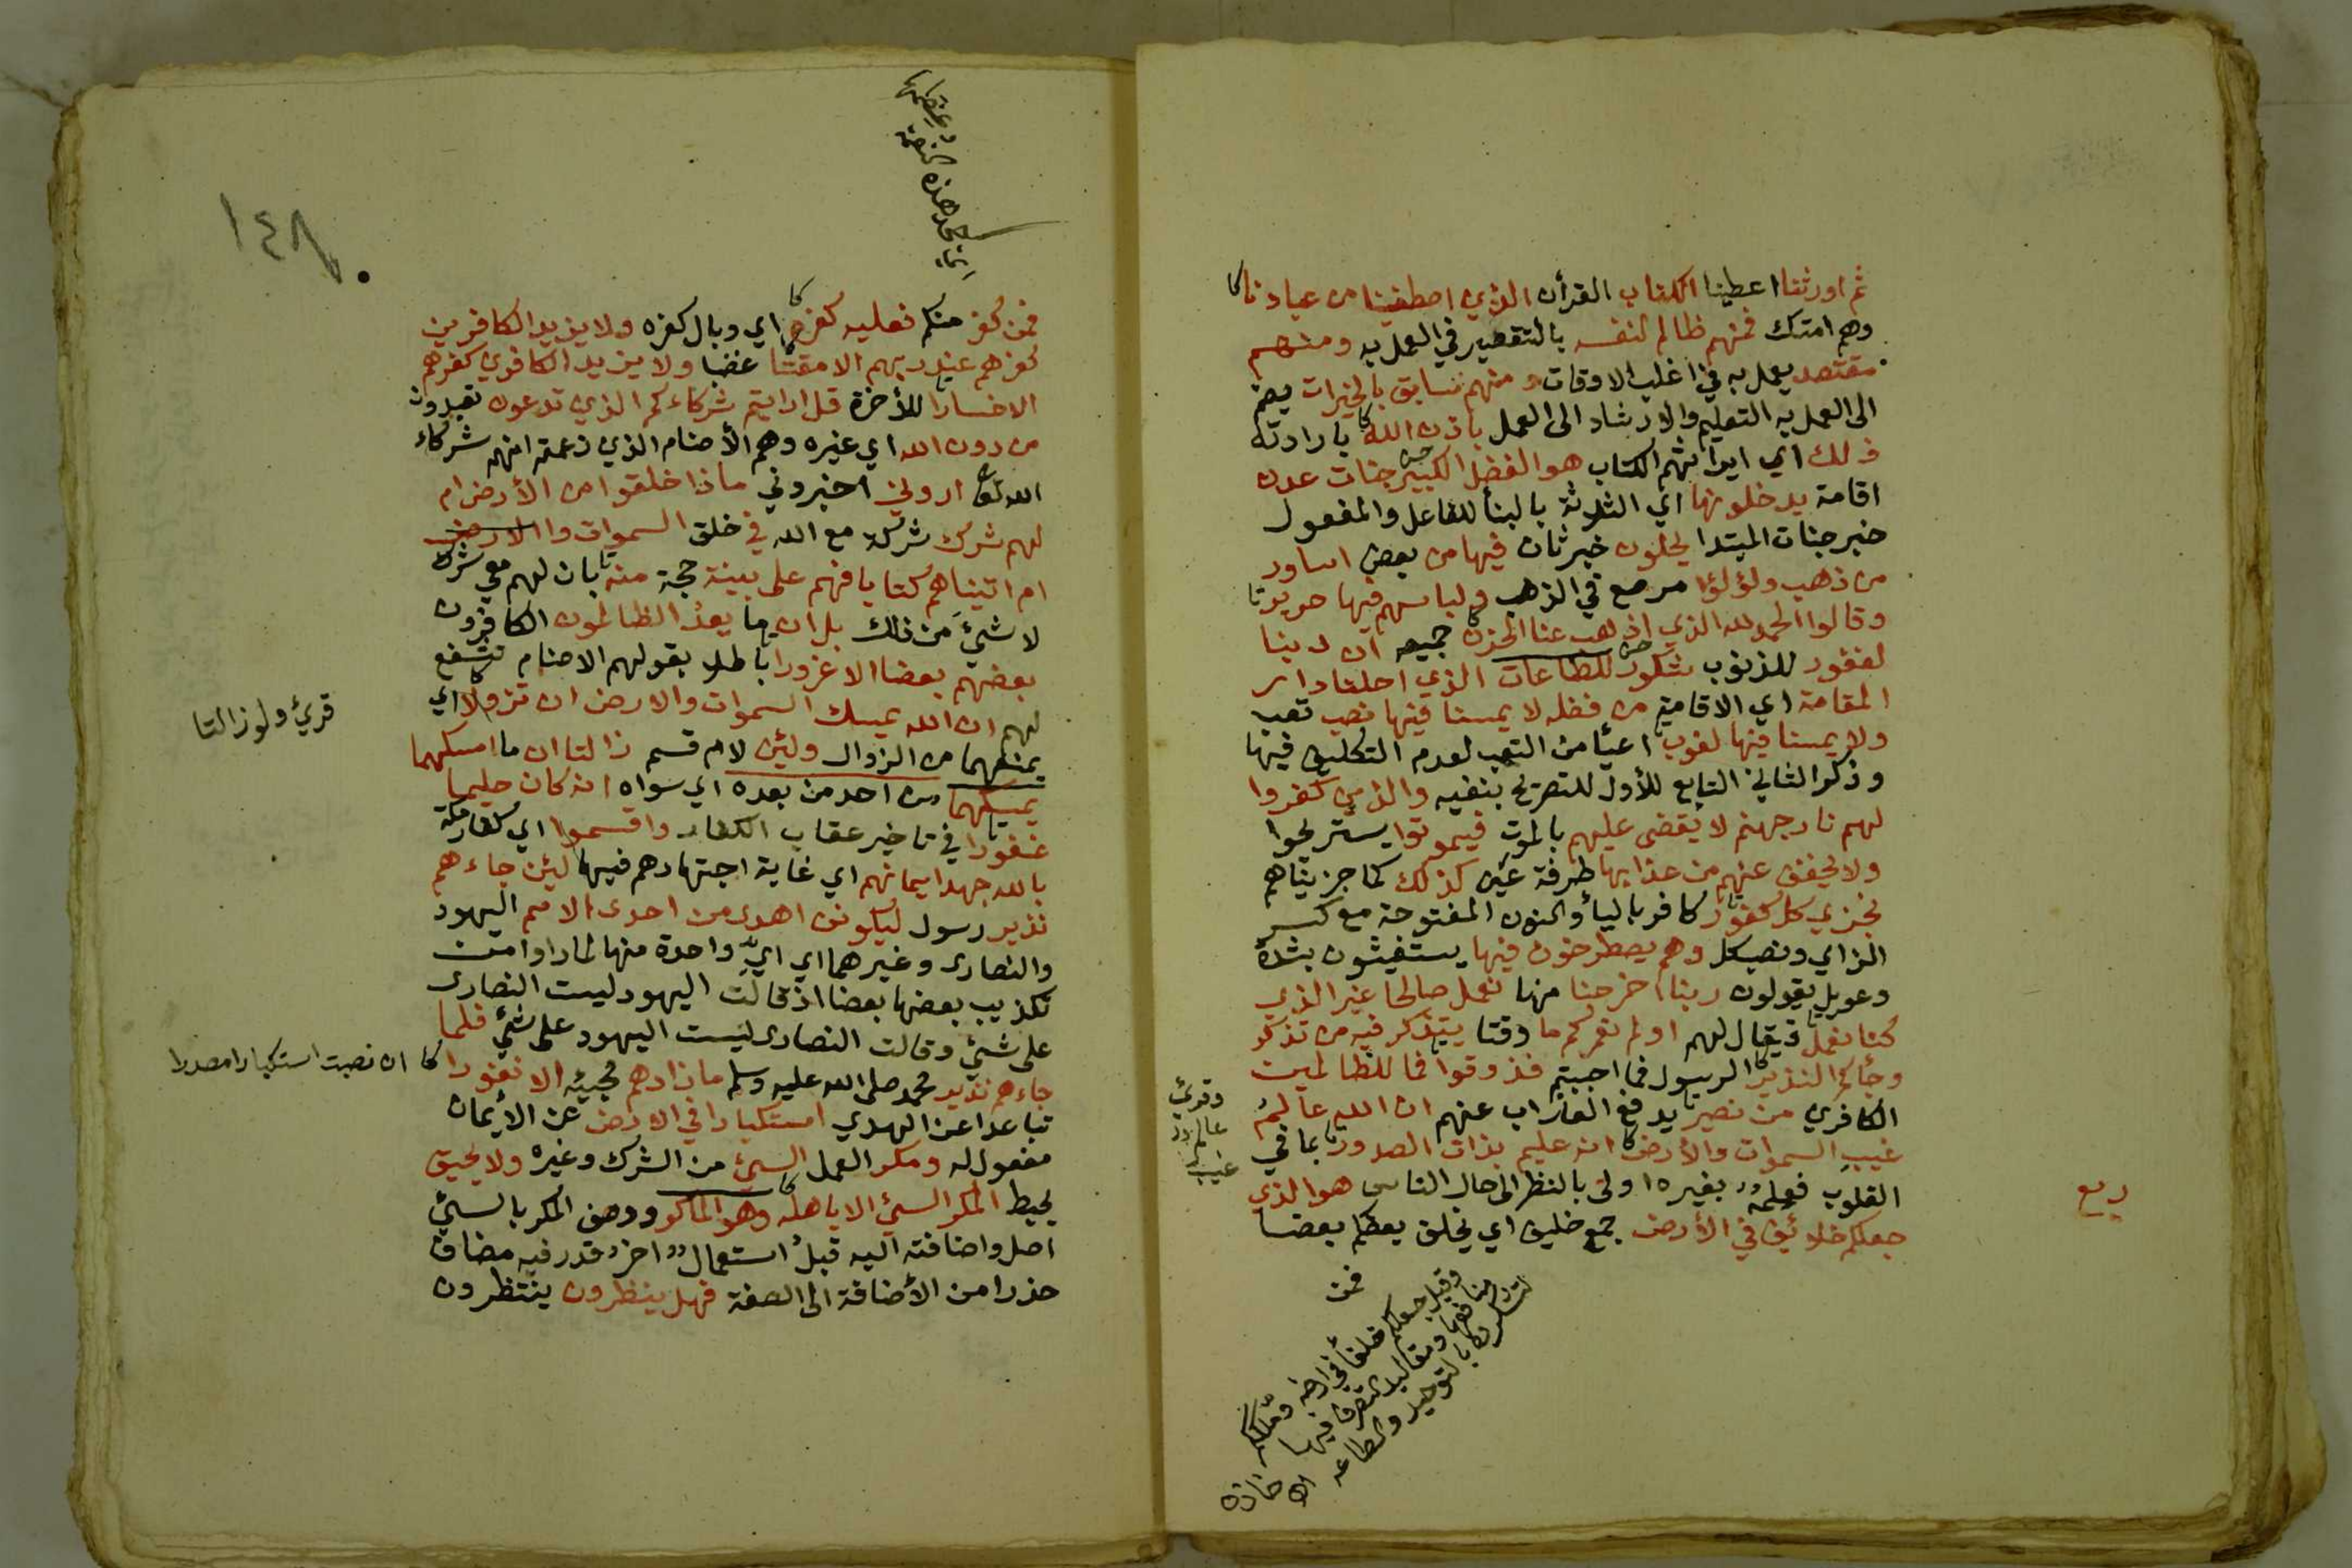 ثم اورثنا اعطينا الكتاب القرأن الذين اصطفينا من عبادنا كا
وهم امتك فمنهم ظالم لنفسه بالتقصير في العمل به ومنهم
مقتصد يعمل به في اغلب الاوقات ومنهم سابق بالخيرات يضم
الى العمل به التعليم والارشاد الى العمل باذن الله كا بارادته
ذلك اي ايراثهم الكتاب هو الفضل الكبير جنات عدن
اقامة يدخلونها اي الثلاثة بالبنأ للفاعل والمفعول
خبر جنات المبتدا يحلون خبر ثان فيها من بعض اساور
من ذهب ولؤلؤا مرصع في الذهب ولباسهم فيها حرير تا
وقالوا الحمد لله الذي اذهب عنا الحزن كا جميعه ان ربنا
لغفور للذنوب شكور للطاعات الذي احلنا دار
المقامة اي الاقامة من فضله لا يمسنا فيها نصب تعب
ولا يمسنا فيها لغوب اعيأ من التعب لعدم التكليف فيها
وذكر الثاني التابع للأول للتصريح بنفيه والذين كفروا
لهم نار جهنم لا يقضى عليهم بالموت فيموتوا يستريحوا
ولا يخفف عنهم من عذابها طرفة عين كذلك كما جزيناهم
نجزي كل كفور كافر باليأ والنون المفتوحة مع كسر
الزاي ونصب كل وهم يصطرخون فيها يستغيثون بشدة
وعويل يقولون ربنا اخرجنا منها نعمل صالحا غير الذي
كنا نعمل فيقال لهم اولم نعمركم ما وقتا يتذكر فيه من تذكر
وجأكم النذير كا الرسول فما اجبتم فذوقوا فما للظالمين
الكافرين من نصير يدفع العذاب عنهم ان الله عالم
غيب السموات والأرض كا انه عليم بذات الصدور بما في
القلوب فعلمه بغيره اولى بالنظر الى حال الناس هو الذي
جعلكم خلائق في الأرض جمع خليف اي يخلف بعضكم بعضا
فمن
وقرئ
عالم
غيب
ربع
وقيل جعلكم خلفأ في ارضه وملككم
منافعها ومقاليد التصرف فيها
لتشكروه بالتوحيد والطاعه
خازن
١٤٨
فمن كفر منكم فعليه كفره كا اي وبال كفره ولا يزيد الكافرين
كفرهم عند ربهم الا مقتا غضبا ولا يزيد الكافرين كفرهم
الا خسارا للأخرة قل ارايتم شركاءكم الذين تدعون تعبدون
من دون الله اي غيره وهم الأصنام الذين زعمتم انهم شركاء
الله تعا اروني اخبروني ماذا خلقوا من الأرض ام
لهم شرك شركة مع الله في خلق السموات والارض
ام اتيناهم كتابا فهم على بينة حجة منه بان لهم معي شركة
لا شيئ من ذلك بل ان ما يعد الظالمون الكافرون
بعضهم بعضا الا غرورا باطلا بقولهم الاصنام تشفع
لهم ان الله يمسك السموات والارض ان تزولا كا اي
يمنعهما من الزوال ولئن لام قسم زالتا ان ما امسكهما
يمسكهما من احد من بعده اي سواه انه كان حليما
غفورا في تاخير عقاب الكفار واقسموا اي كفار مكة
بالله جهد ايمانهم اي غاية اجتهادهم فيها لئن جاءهم
نذير رسول ليكونن اهدى من احدى الامم اليهود
والنصارى وغيرهما اي اي واحدة منها لما راوا من
تكذيب بعضها بعضا اذ قالت اليهود ليست النصارى
على شيئ وقالت النصارى ليست اليهود على شيئ فلما
جاءهم نذير محمد صلى الله عليه وسلم ما زادهم مجيئه الا نفورا كا
تباعدا عن الهدى استكبارا في الارض عن الأيمان
مفعول له ومكر العمل السيئ من الشرك وغيره ولا يحيق
يحيط المكر السيئ الا باهله كا وهو الماكر ووصف المكر بالسيئ
اصل واضافته اليه قبل استعمال اخر قدر فيه مضاف
حذرا من الأضافة الى الصفة فهل ينظرون ينتظرون
اي لجحد هذه النعمة
قرئ ولو زالتا
ان نصبت استكبارا مصدرا